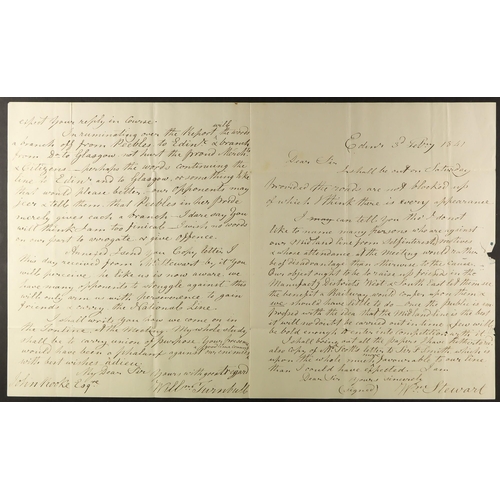 expect your reply in Course —
In ruminating over the Report with the words
a branch off from Peebles to Edinr. & branch
from Do. to Glasgow, not hurt the proud Merch.ts
& Citizens — perhaps the words continuing the
line to Edinr. and to Glasgow, or something like
that would please better. Our opponents may
say & tell them that Peebles in her pride
merely gives each a branch — I dare say you
will think I am too finical — I wish no words
on our part to arrogate or give offence —
Annexed, I send you Copy letter I
this day received from Mr Stewart by it you
will perceive & like us is now aware we
have many opponents to struggle against this
will only urge us with perseverance to gain
friends & carry the National Line.
I shall write you how we come on in
the Meeting. My whole study
shall be to carry union of purpose
would have been a phalanx against our enemies
with best wishes believe
My Dear Sir Yours with great regard
John Rooke Esqr. Willm. Turnbull
Edinr. 3d Feby 1841
Dear Sir
I shall be out on Saturday
provided the roads are not blocked up
of which I think there is every appearance
I may can tell you that I do not
like to name many persons who are against
our inland line from Self interested motives
& whose attendance at the Meeting would rather
be at disadvantage than otherwise to the Cause.
Our object ought to be to raise up friends in the
Manufactg. Districts West & South East let them see
the benefit a Railway would confer upon them &
we should have little to do — once the public are
impressed with the idea that the midland line is the best
it will no doubt be carried out & none a few will
be bold enough to urge interested objections to it
I shall bring out all the papers I have
also copy of letter to Sir F. Smith which is
upon the whole more favourable to our line
than I could have expected. I am
Dear Sir Yours sincerely
(signed) Wm. Stewart